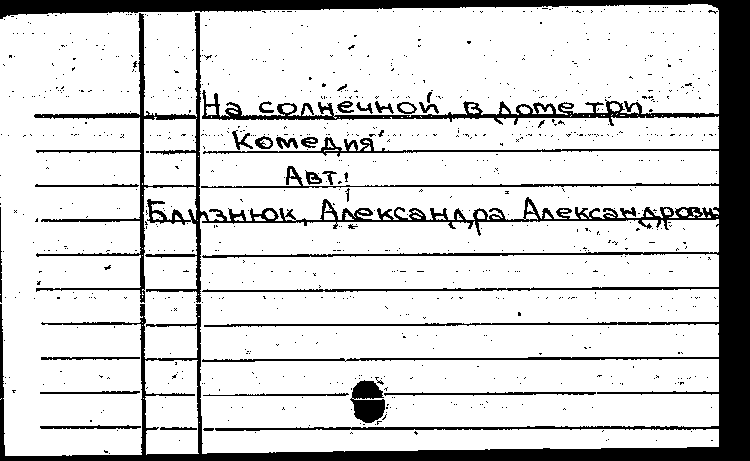 На солнечной, в доме три.
Комедия.
Авт.:
Близнюк, Александра Александровна